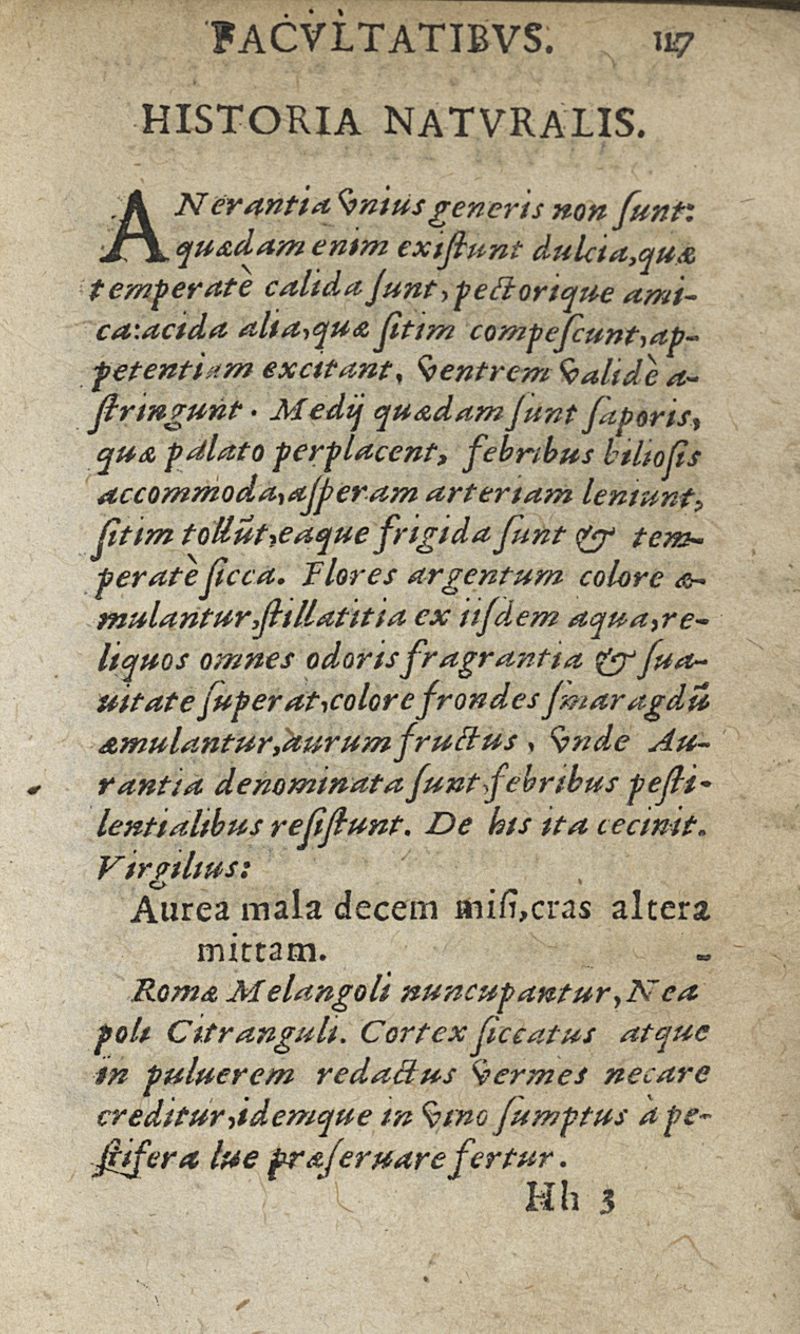 FACVLTATIBVS. 117
HISTORIA NATVRALIS.
ANerantia vnius generis non ſunt:
quædam enim exiſtunt dulcia, quæ
temperatè calida ſunt, pectorique ami-
ca: acida alia, quæ ſitim compeſcunt, ap-
petentiam excitant, ventrem validè a-
ſtringunt. Medij quædam ſunt ſaporis,
quæ palato perplacent, febribus bilioſis
accommoda, aſperam arteriam leniunt,
ſitim tollũt, eaque frigida ſunt & tem-
peratè ſicca. Flores argentum colore æ-
mulantur, ſtillatitia ex iiſdem aqua, re-
liquos omnes odoris fragrantia & ſua-
uitate ſuperat, colore frondes ſmaragdũ
æmulantur, aurum fructus, vnde Au-
rantia denominata ſunt, febribus peſti-
lentialibus reſiſtunt. De his ita cecinit.
Virgilius:
Aurea mala decem miſi, cras altera
mittam.
Romæ Melangoli nuncupantur, Nea
poli Citranguli. Cortex ſiccatus atque
in puluerem redactus vermes necare
creditur, idemque in vino ſumptus à pe-
ſtifera lue præſeruare fertur.
Hh 3